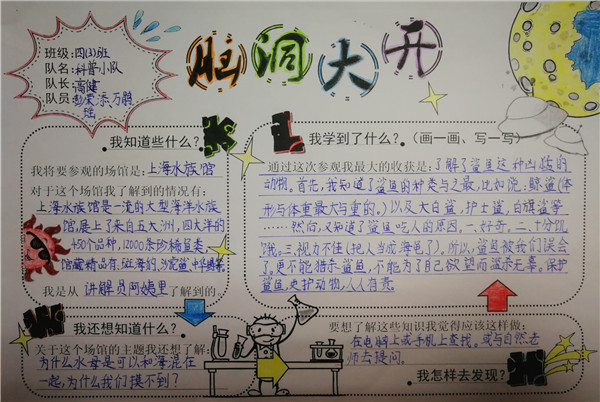 脑洞大开
班级:四(3)班
队名:科普小队
队长:高健
队员:
瑶
我知道些什么?
K
我将要参观的场馆是:上海水族馆
对于这个场馆我了解到的情况有:
上海水族馆是一流的大型海洋水族
馆,展上了来自五大洲,四大洋的
450个品种,12000条珍稀鱼类
馆藏精品有:
我是从 讲解员阿姨里了解到的
L
我学到了什么?(画一画、写一写)
通过这次参观我最大的收获是:了解了鲨鱼这种凶猛的
动物。首先,我知道了鲨鱼的种类与之最,比如说:鲸鲨(体
形与体重最大与重的。)以及大白鲨,护士鲨,白旗鲨等
……然后,又知道了鲨鱼吃人的原因。一.好奇。二.十分饥
饿。三.视力不佳(把人当成海龟了)。所以,鲨鱼被我们误会
了。更不能猎杀鲨鱼,不能为了自己欲望而滥杀无辜。保护
鲨鱼,爱护动物,人人有责
W
我还想知道什么?
关于这个场馆的主题我还想了解:
为什么水母是可以和海混在
一起,为什么我们摸不到?
要想了解这些知识我觉得应该这样做:
在电脑上或手机上查找。或与自然老
师去提问。
我怎样去发现?
H